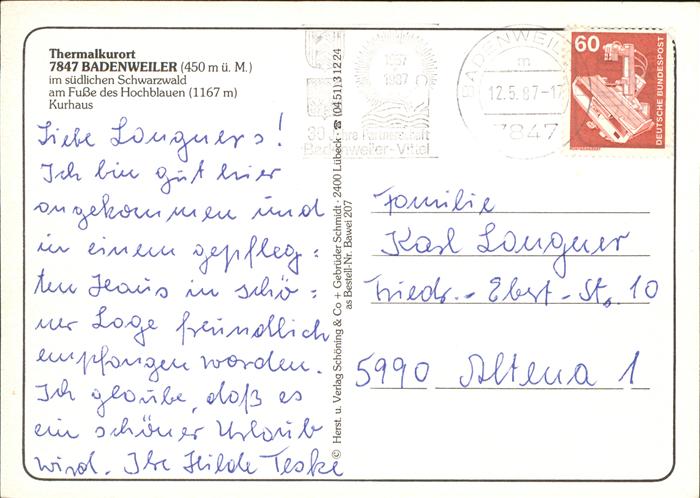 Thermalkurort
7847 BADENWEILER (450 m ü. M.)
im südlichen Schwarzwald
am Fuße des Hochblauen (1167 m)
Kurhaus
Liebe Langners!
Ich bin gut hier
angekommen und
in einem gepfleg=
ten Haus in schö=
ner Lage freundlich
empfangen worden.
Ich glaube, daß es
ein schöner Urlaub
wird. Ihre Hilde Teske
© Herst. u. Verlag Schöning & Co + Gebrüder Schmidt · 2400 Lübeck · ☎ (0451) 3 12 24
as Bestell-Nr. Bawei 207
1957
1987
30 Jahre Partnerschaft
Badenweiler-Vittel
BADENWEILER
m
12.5.87-17
7847
60
DEUTSCHE BUNDESPOST
Familie
Karl Langner
Friedr.-Ebert-Str. 10
5990 Altena 1